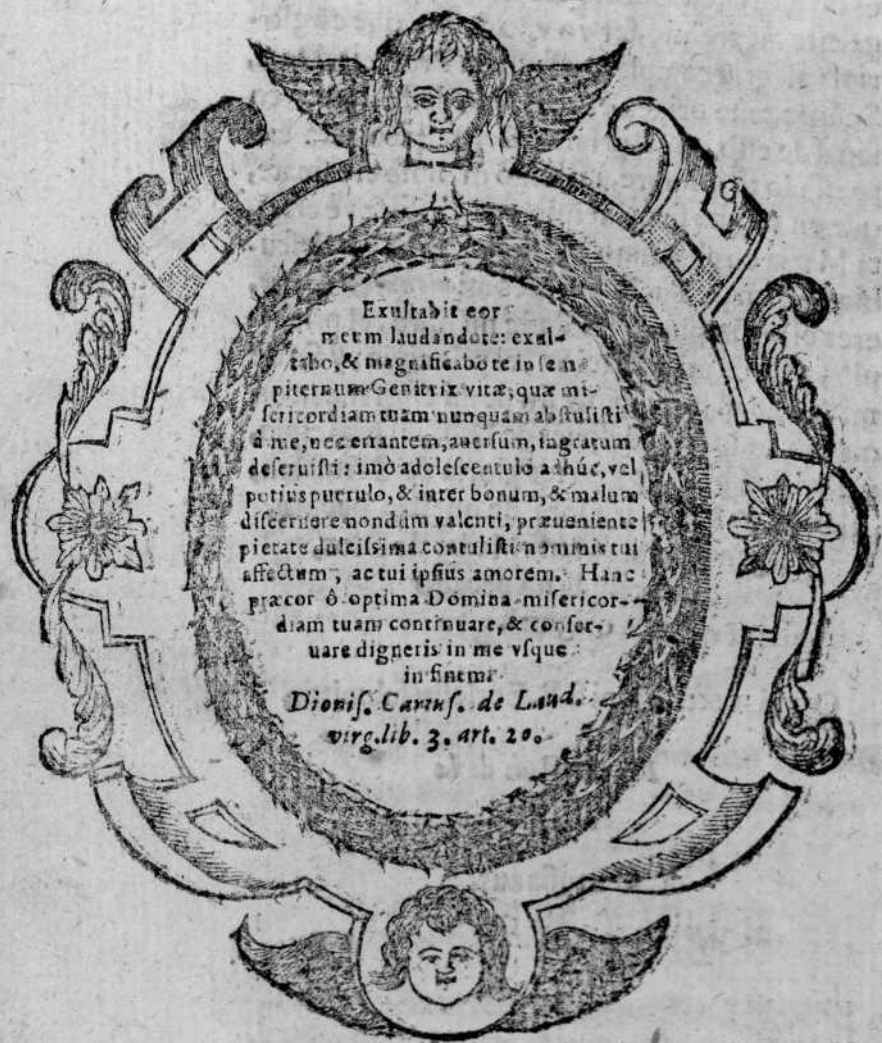 Exultabit cor
meum laudando te: exal-
tabo, & magnificabo te in sem
piternum Genitrix vitæ, quæ mi-
sericordiam tuam nunquam abstulisti
à me, nec errantem, auersum, ingratum
deseruisti: imò adolescentulo adhúc, vel
potius puerulo, & inter bonum, & malum
discernere nondùm valenti, præueniente
pietate dulcissima contulisti nominis tui
affectum, ac tui ipsius amorem. Hanc
præcor ô optima Domina misericor-
diam tuam continuare, & conser-
uare digneris in me vsque
in finem.
Dionis. Cartus. de Laud.
virg. lib. 3. art. 20.